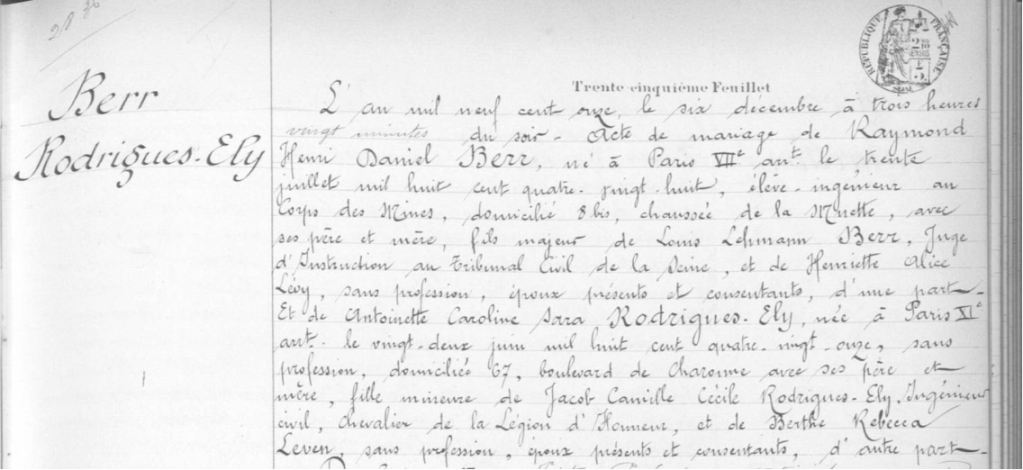 Trente-cinquième Feuillet
RÉPUBLIQUE FRANÇAISE
Berr
Rodrigues-Ely
L'an mil neuf cent onze, le six décembre à trois heures
vingt minutes du soir - Acte de mariage de Raymond
Henri Daniel Berr, né à Paris VIIe arrt. le trente
juillet mil huit cent quatre-vingt-huit, élève-ingénieur au
Corps des Mines, domicilié 8 bis, chaussée de la Muette, avec
ses père et mère, fils majeur de Louis Lehmann Berr, Juge
d'Instruction au Tribunal Civil de la Seine, et de Henriette Alice
Lévy, sans profession, époux présents et consentants, d'une part-
Et de Antoinette Caroline Sara Rodrigues-Ely, née à Paris XIe
arrt. le vingt-deux juin mil huit cent quatre-vingt-onze, sans
profession, domiciliée 67, boulevard de Charonne avec ses père et
mère, fille mineure de Jacob Camille Cécile Rodrigues-Ely, Ingénieur
civil, chevalier de la Légion d'Honneur, et de Berthe Rebecca
Leven, sans profession, époux présents et consentants, d'autre part-